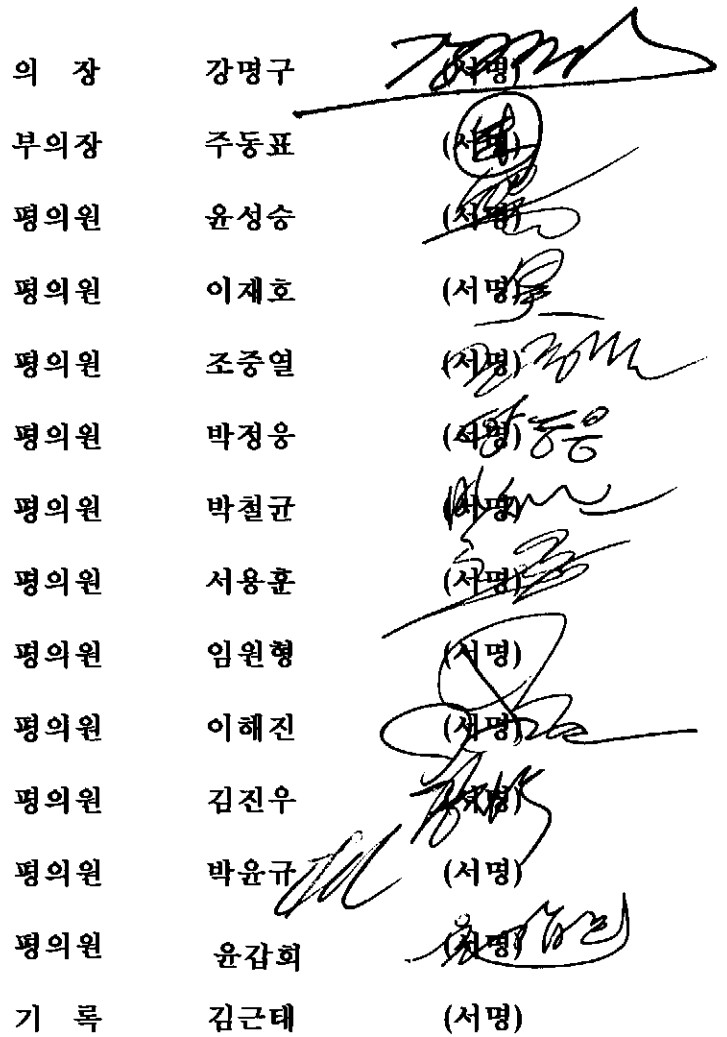 의 장 강명구 (서명)
부의장 주동표 (서명)
평의원 윤성승 (서명)
평의원 이재호 (서명)
평의원 조중열 (서명)
평의원 박정웅 (서명)
평의원 박철균 (서명)
평의원 서용훈 (서명)
평의원 임원형 (서명)
평의원 이해진 (서명)
평의원 김진우 (서명)
평의원 박윤규 (서명)
평의원 윤갑희 (서명)
기 록 김근태 (서명)